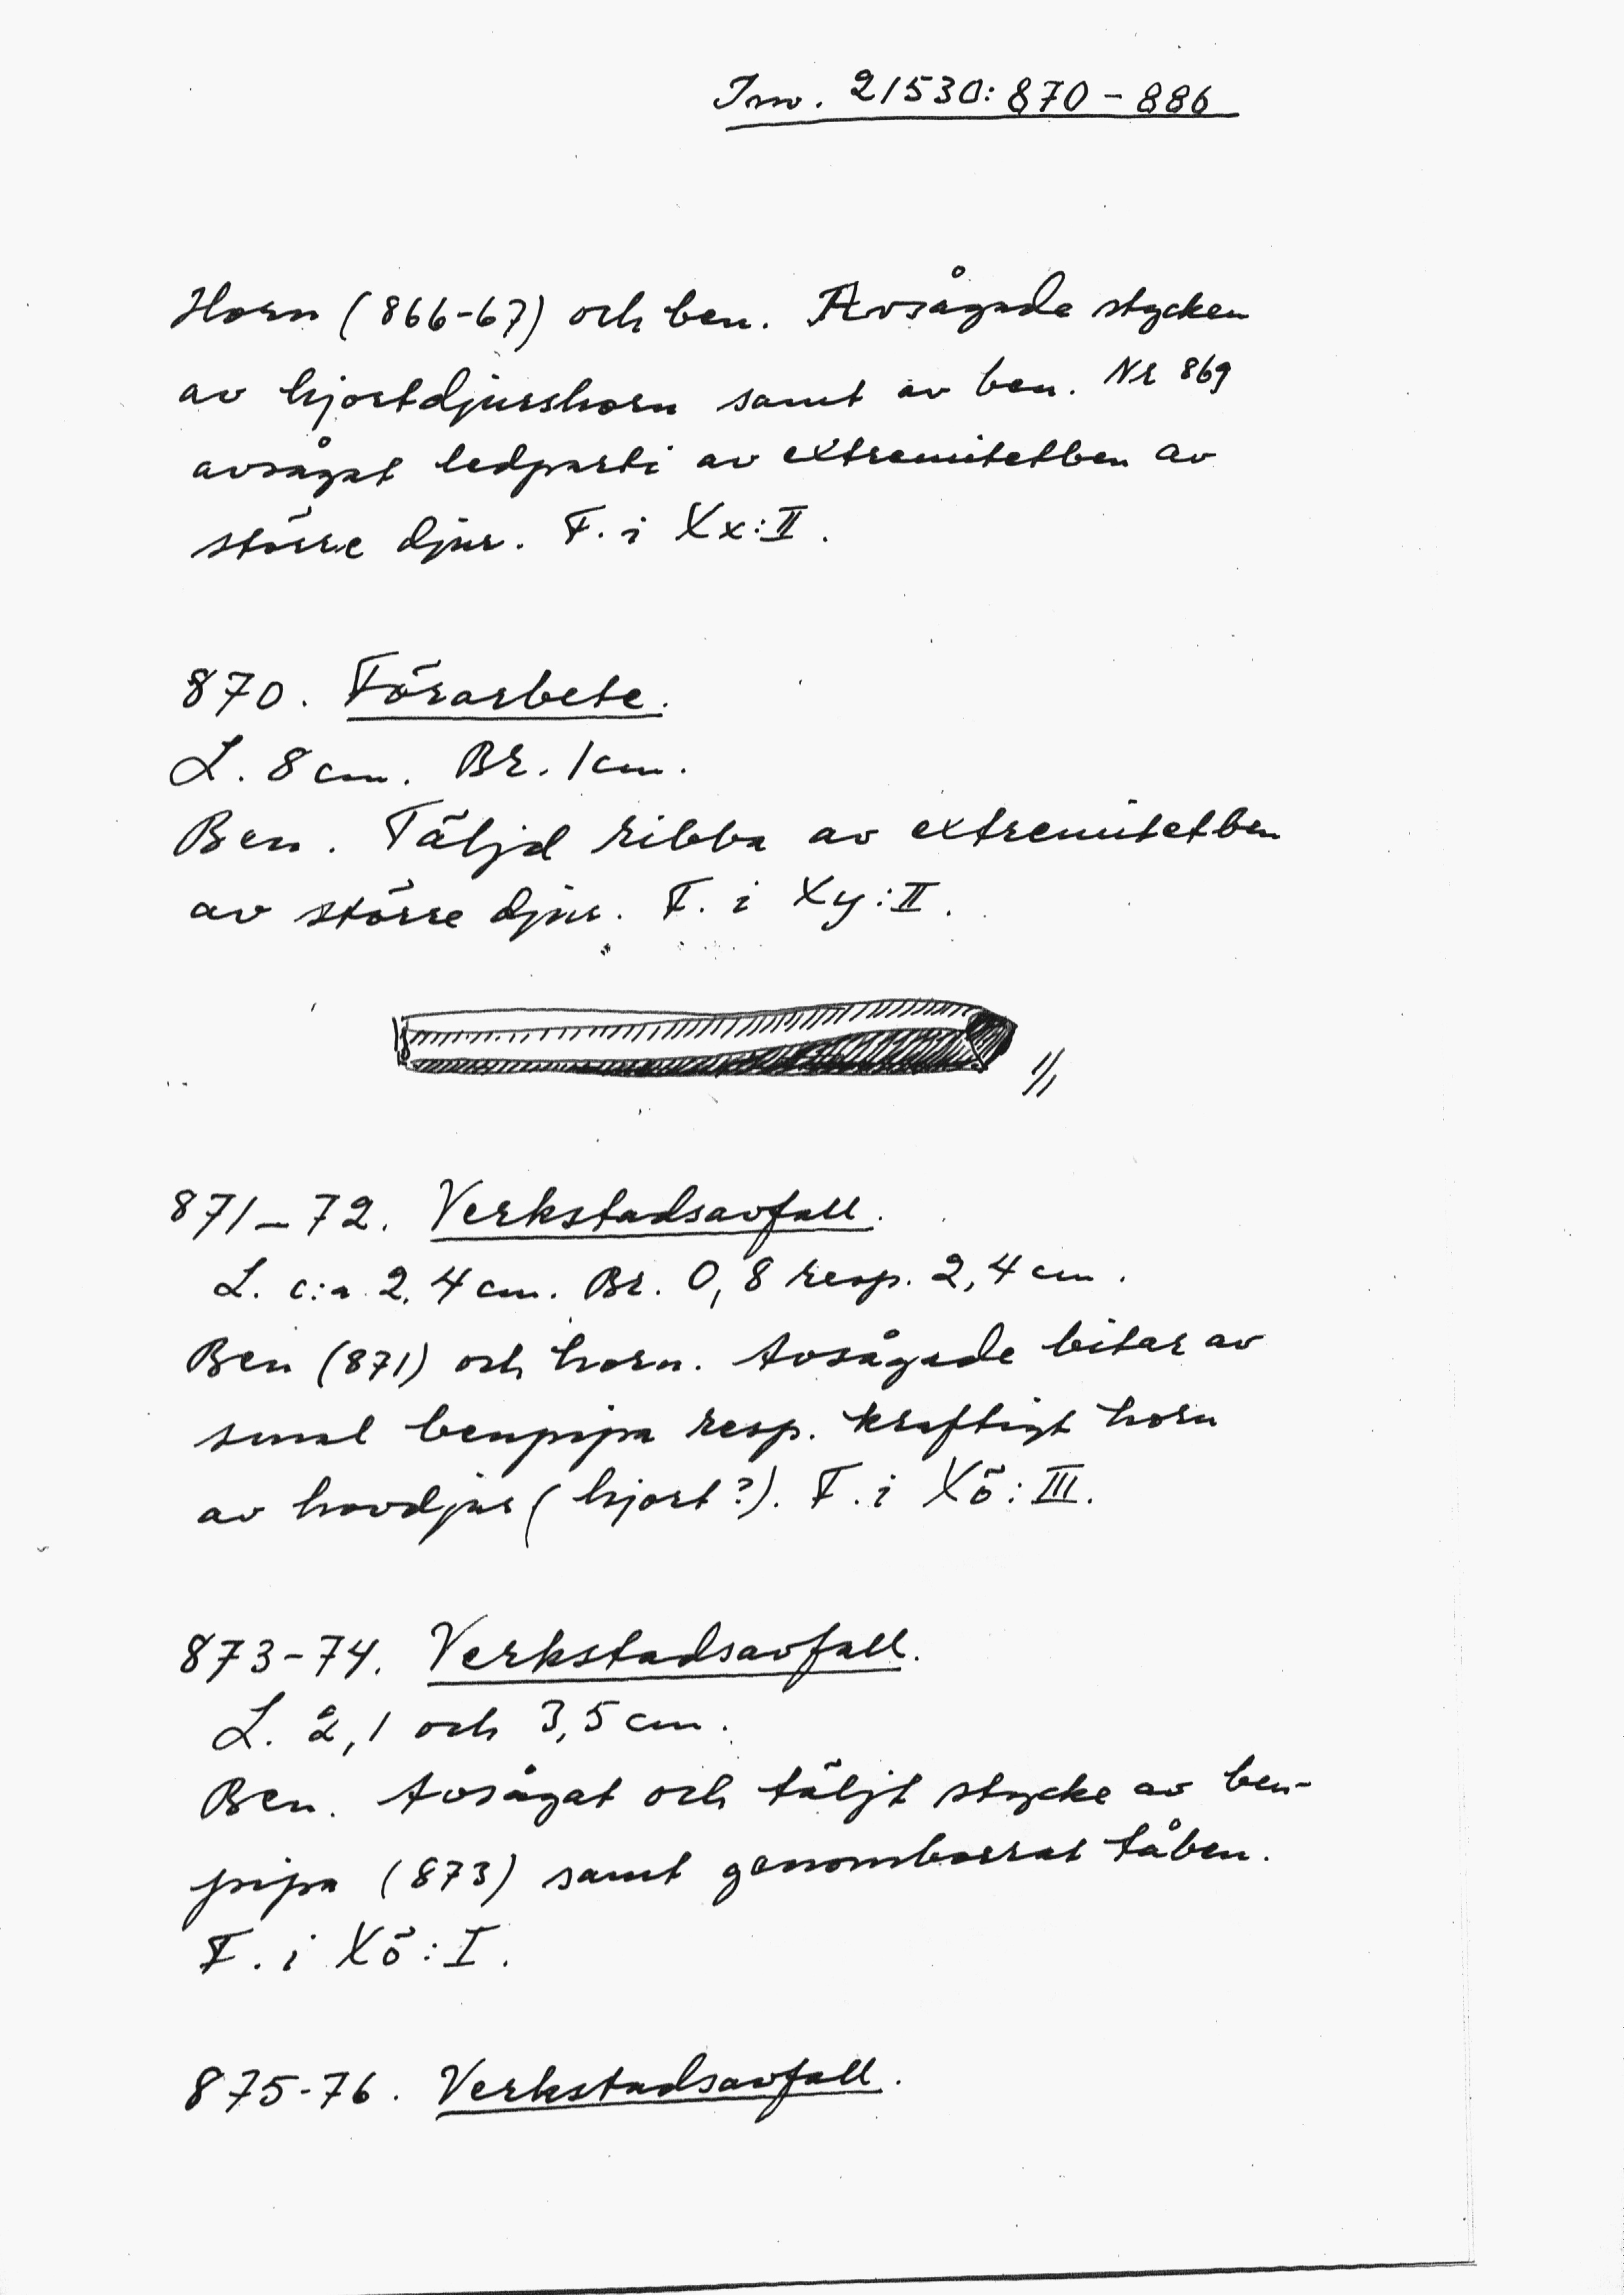 Inv. 21530:870-886
Horn (866-67) och ben. Avsågade stycken
av hjortdjurshorn samt av ben. Nr 869
avsågat ledparti av extremitetben av
större djur. F. i Xx:II.
870. Förarbete.
L. 8 cm. Br. 1 cm.
Ben. Täljd ribba av extremitetben
av större djur. F. i Xy:II.
1/1
871-72. Verkstadsavfall.
L. c:a 2,4 cm. Br. 0,8 resp. 2,4 cm.
Ben (871) och horn. Avsågade bitar av
smal benpipa resp. kraftigt horn
av hovdjur (hjort?). F. i Xö:III.
873-74. Verkstadsavfall.
L. 2,1 och 3,5 cm.
Ben. Avsågat och täljt stycke av ben-
pipa (873) samt genomborrat tåben.
F. i Xö:I.
875-76. Verkstadsavfall.